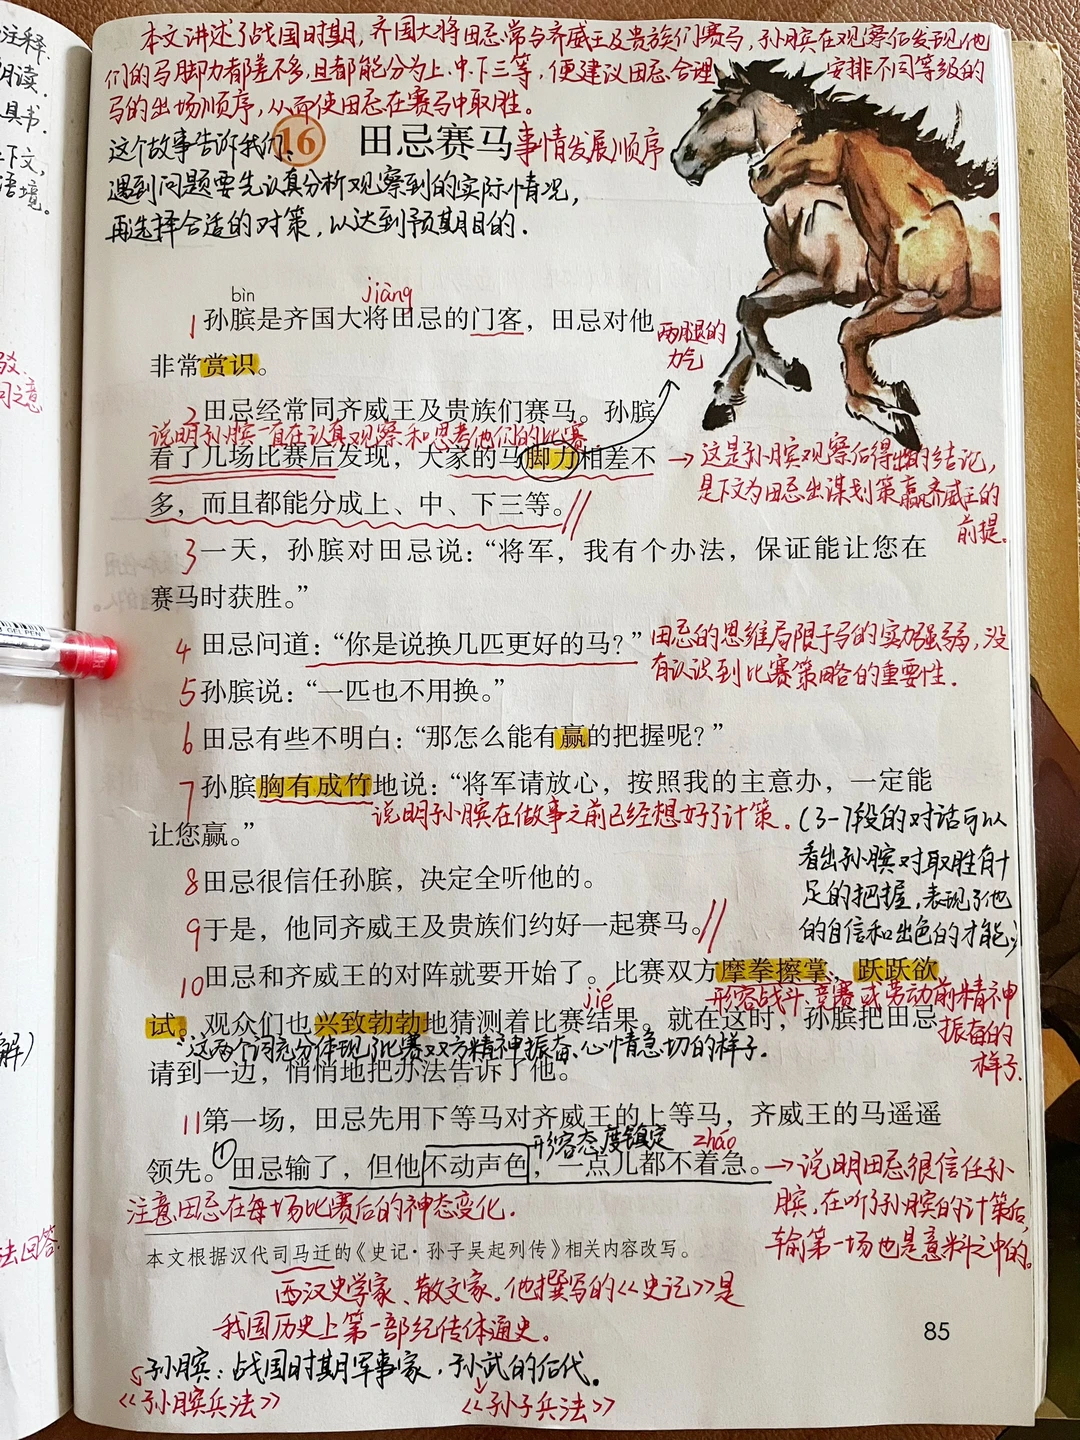 本文讲述了战国时期,齐国大将田忌常与齐威王及贵族们赛马,孙膑在观察后发现他
们的马脚力都差不多,且都能分为上、中、下三等,便建议田忌合理安排不同等级的
马的出场顺序,从而使田忌在赛马中取胜。
16 田忌赛马 事情发展顺序
这个故事告诉我们:
遇到问题要先认真分析观察到的实际情况,
再选择合适的对策,以达到预期目的.
bìn jiàng
1 孙膑是齐国大将田忌的门客,田忌对他
非常赏识。
两腿的
力气
2 田忌经常同齐威王及贵族们赛马。孙膑
说明孙膑一直在认真观察和思考他们的比赛.
看了几场比赛后发现,大家的马脚力相差不
多,而且都能分成上、中、下三等。//
→这是孙膑观察后得出的结论,
是下文为田忌出谋划策赢齐威王的
前提。
3 一天,孙膑对田忌说:“将军,我有个办法,保证能让您在
赛马时获胜。”
4 田忌问道:“你是说换几匹更好的马?”
田忌的思维局限于马的实力强弱,没
有认识到比赛策略的重要性.
5 孙膑说:“一匹也不用换。”
6 田忌有些不明白:“那怎么能有赢的把握呢?”
7 孙膑胸有成竹地说:“将军请放心,按照我的主意办,一定能
说明孙膑在做事之前已经想好了计策。
让您赢。”
(3-7段的对话可以
看出孙膑对取胜有十
足的把握,表现了他
的自信和出色的才能。)
8 田忌很信任孙膑,决定全听他的。
9 于是,他同齐威王及贵族们约好一起赛马。//
10 田忌和齐威王的对阵就要开始了。比赛双方摩拳擦掌、跃跃欲
jié
形容战斗、竞赛或劳动前精神
振奋的
样子.
试。观众们也兴致勃勃地猜测着比赛结果。就在这时,孙膑把田忌
这两个词充分体现了比赛双方精神振奋、心情急切的样子.
请到一边,悄悄地把办法告诉了他。
11 第一场,田忌先用下等马对齐威王的上等马,齐威王的马遥遥
形容态度镇定 zháo
领先。①田忌输了,但他不动声色,一点儿都不着急。
→说明田忌很信任孙
膑,在听了孙膑的计策后,
输第一场也是意料之中的。
注意田忌在每场比赛后的神态变化.
本文根据汉代司马迁的《史记·孙子吴起列传》相关内容改写。
西汉史学家、散文家.他撰写的《史记》是
我国历史上第一部纪传体通史。
85
孙膑:战国时期军事家,孙武的后代。
《孙膑兵法》 《孙子兵法》
注释
朗读.
具书.
下文,
语境。
词之意
解)
法回答.
GEL PEN